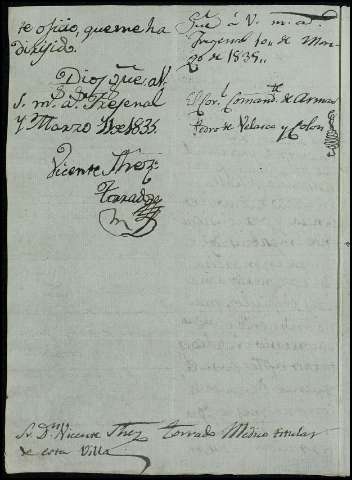 te oficio, que me ha
dirijido.
Dios gue. a V.
s. m. a. Frejenal
y Marzo 11 de 1835.
Vicente Thez
torrado
Gue. á V. m. a.
Frejenal 10 de Mar-
zo de 1835.
El Cor. Comand.te de Armas
Pedro de Velasco y Colon
S. D.n Vicente Thez torrado Medico titular
de esta Villa